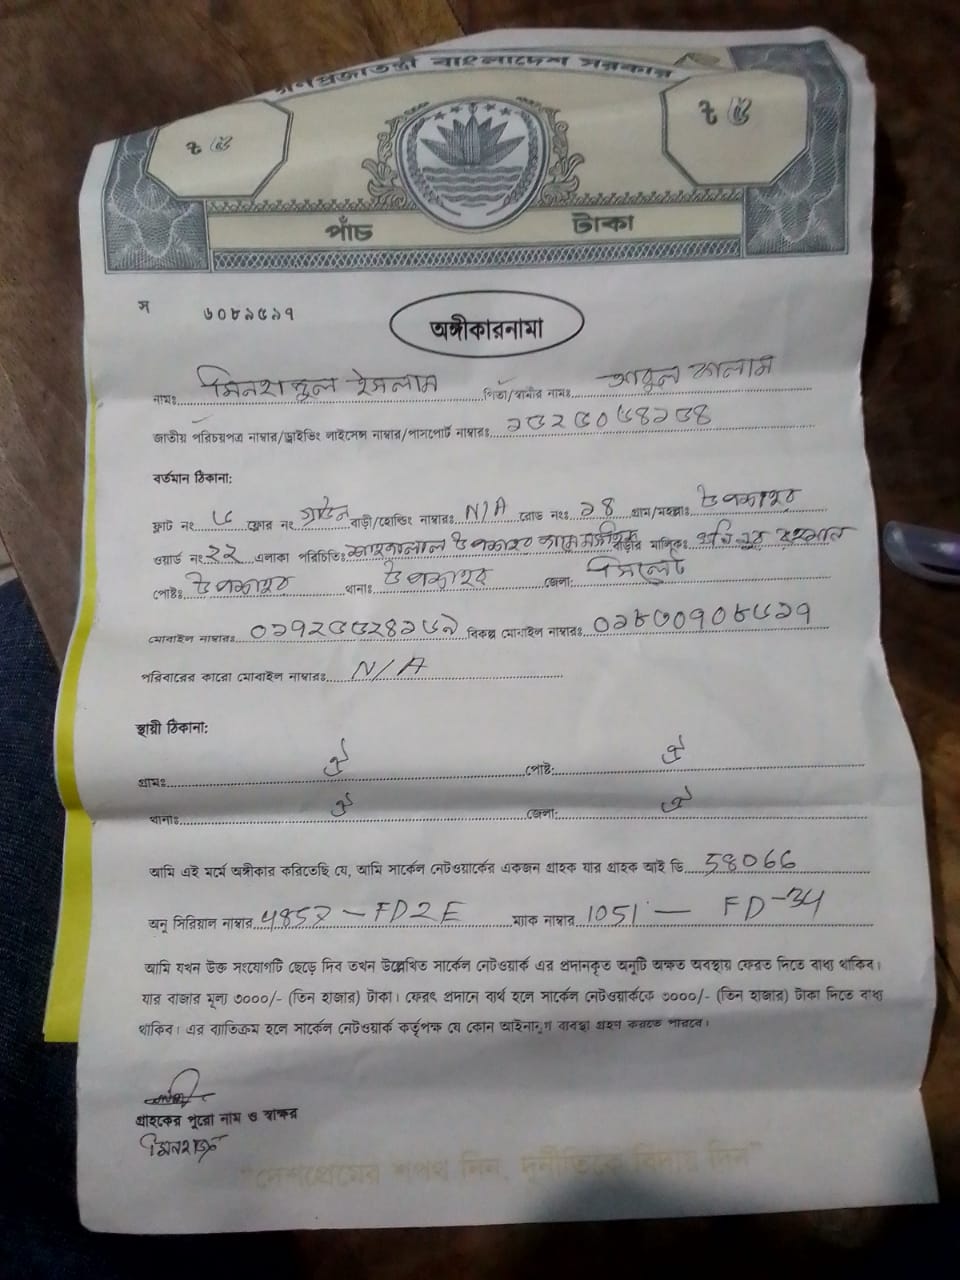 গণপ্রজাতন্ত্রী বাংলাদেশ সরকার
৳ ৫ ৳ ৫
পাঁচ টাকা
স ৬০৮৯৫৯৭
অঙ্গীকারনামা
নামঃ মিনহাজুল ইসলাম পিতা/স্বামীর নামঃ আবুল কালাম
জাতীয় পরিচয়পত্র নাম্বার/ড্রাইভিং লাইসেন্স নাম্বার/পাসপোর্ট নাম্বারঃ
বর্তমান ঠিকানা:
ফ্লাট নং ফ্লোর নং বাড়ী/হোল্ডিং নাম্বারঃ N/A রোড নংঃ ১৪ গ্রাম/মহল্লাঃ উপশহর
ওয়ার্ড নংঃ ২২ এলাকা পরিচিতিঃ শাহজালাল উপশহর জামে মসজিদ বাড়ীর মালিকঃ রহমান
পোষ্টঃ উপশহর থানাঃ উপশহর জেলা: সিলেট
মোবাইল নাম্বারঃ বিকল্প মোবাইল নাম্বারঃ
পরিবারের কারো মোবাইল নাম্বারঃ N/A
স্থায়ী ঠিকানা:
গ্রামঃ ঐ পোষ্ট: ঐ
থানাঃ ঐ জেলা: ঐ
আমি এই মর্মে অঙ্গীকার করিতেছি যে, আমি সার্কেল নেটওয়ার্কের একজন গ্রাহক যার গ্রাহক আই ডি 58066
অনু সিরিয়াল নাম্বার FD2E ম্যাক নাম্বার 1051 — FD-34
আমি যখন উক্ত সংযোগটি ছেড়ে দিব তখন উল্লেখিত সার্কেল নেটওয়ার্ক এর প্রদানকৃত অনুটি অক্ষত অবস্থায় ফেরত দিতে বাধ্য থাকিব।
যার বাজার মূল্য ৩০০০/- (তিন হাজার) টাকা। ফেরৎ প্রদানে ব্যর্থ হলে সার্কেল নেটওয়ার্ককে ৩০০০/- (তিন হাজার) টাকা দিতে বাধ্য
থাকিব। এর ব্যতিক্রম হলে সার্কেল নেটওয়ার্ক কর্তৃপক্ষ যে কোন আইনানুগ ব্যবস্থা গ্রহণ করতে পারবে।
গ্রাহকের পুরো নাম ও স্বাক্ষর
মিনহাজ
"দেশপ্রেমের শপথ নিন, দুর্নীতিকে বিদায় দিন"